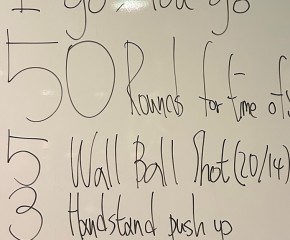 I go, You go
50 Rounds for time of:
5 Wall Ball Shot (20/14)
3 Handstand push up